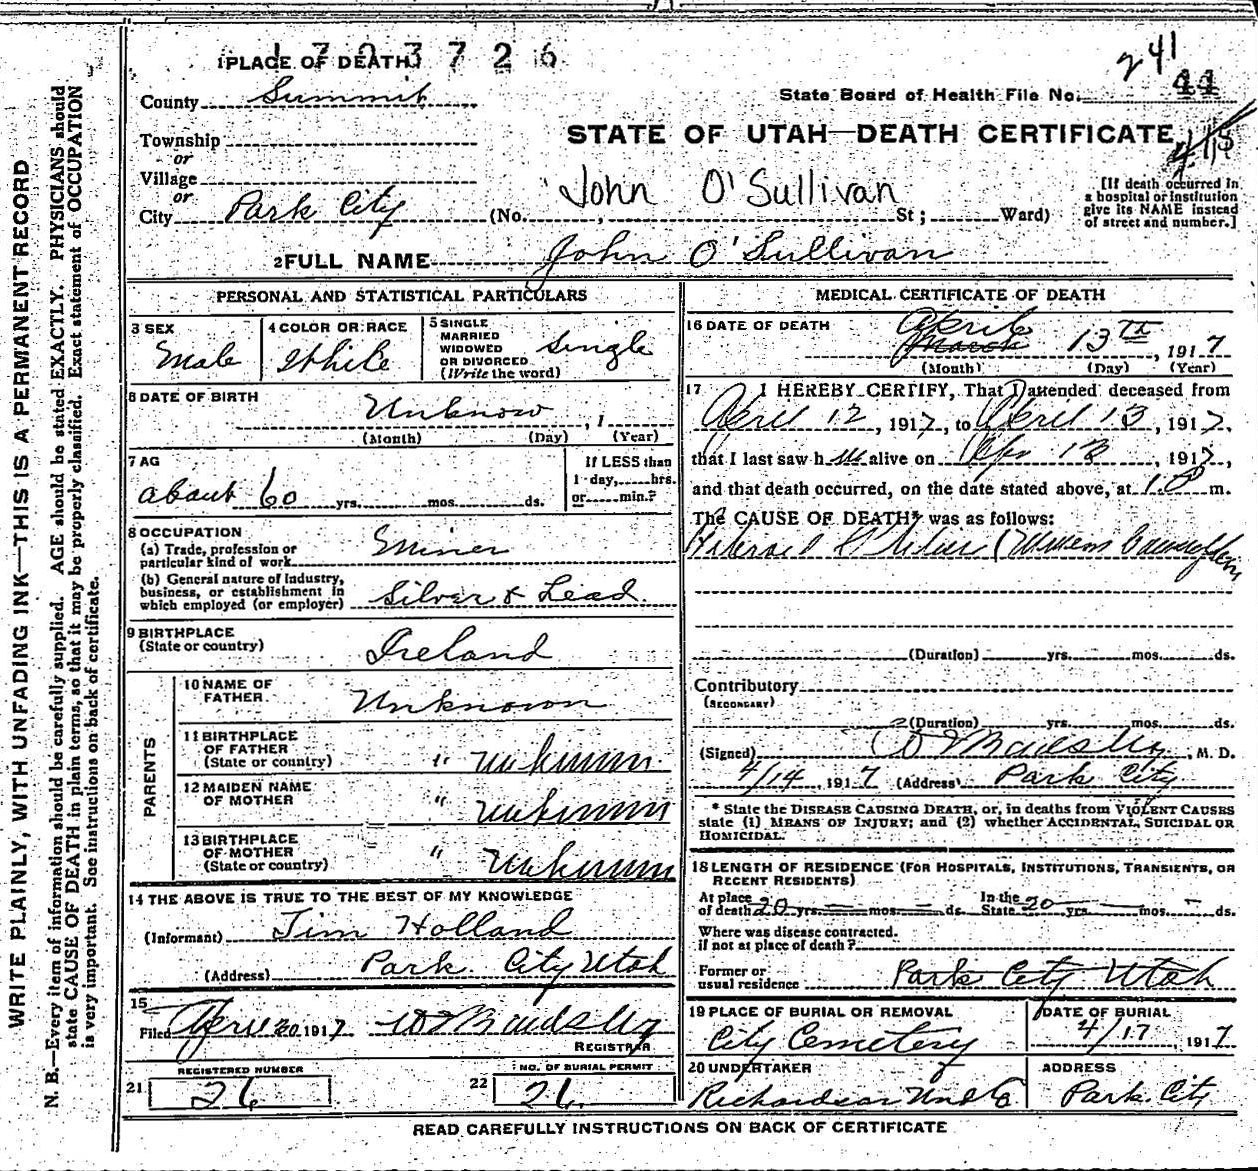 1 7 0 3 7 2 6
1 PLACE OF DEATH
County Summit
Township
or
Village
or
City Park City
241
State Board of Health File No. 44
STATE OF UTAH—DEATH CERTIFICATE
John O'Sullivan
(No. , St ; Ward)
[If death occurred in
a hospital or institution
give its NAME instead
of street and number.]
2 FULL NAME John O'Sullivan
PERSONAL AND STATISTICAL PARTICULARS
3 SEX
Male
4 COLOR OR RACE
White
5 SINGLE
MARRIED
WIDOWED
OR DIVORCED
(Write the word)
Single
6 DATE OF BIRTH
Unknow , 1
(Month) (Day) (Year)
7 AG
about 60 yrs. mos. ds.
If LESS than
1 day, hrs.
or min.?
8 OCCUPATION
(a) Trade, profession or
particular kind of work Miner
(b) General nature of Industry,
business, or establishment in
which employed (or employer) Silver & Lead.
9 BIRTHPLACE
(State or country) Ireland
PARENTS
10 NAME OF
FATHER Unknown
11 BIRTHPLACE
OF FATHER
(State or country) " unknown
12 MAIDEN NAME
OF MOTHER " unknown
13 BIRTHPLACE
OF MOTHER
(State or country) " unknown
14 THE ABOVE IS TRUE TO THE BEST OF MY KNOWLEDGE
(Informant) Jim Holland
(Address) Park City Utah
15
Filed April 20 1917
REGISTRAR
21 REGISTERED NUMBER
26
22 NO. OF BURIAL PERMIT
26
MEDICAL CERTIFICATE OF DEATH
16 DATE OF DEATH
April
March 13TH, 1917
(Month) (Day) (Year)
17 I HEREBY CERTIFY, That I attended deceased from
April 12, 1917, to April 13, 1917,
that I last saw h m alive on Apr 13, 1917,
and that death occurred, on the date stated above, at m.
The CAUSE OF DEATH* was as follows:
(Duration) yrs. mos. ds.
Contributory
(SECONDARY)
(Duration) yrs. mos. ds.
(Signed) , M. D.
4/14, 1917 (Address) Park City
* State the DISEASE CAUSING DEATH, or, in deaths from VIOLENT CAUSES
state (1) MEANS OF INJURY; and (2) whether ACCIDENTAL, SUICIDAL OR
HOMICIDAL.
18 LENGTH OF RESIDENCE (FOR HOSPITALS, INSTITUTIONS, TRANSIENTS, OR
RECENT RESIDENTS)
At place
of death 20 yrs. — mos. — ds. In the
State 20 yrs. — mos. - ds.
Where was disease contracted.
if not at place of death?
Former or
usual residence Park City Utah
19 PLACE OF BURIAL OR REMOVAL
City Cemetery
DATE OF BURIAL
4/17 1917
20 UNDERTAKER
Richardson Und Co
ADDRESS
Park City
READ CAREFULLY INSTRUCTIONS ON BACK OF CERTIFICATE
WRITE PLAINLY, WITH UNFADING INK—THIS IS A PERMANENT RECORD
N. B.—Every item of information should be carefully supplied. AGE should be stated EXACTLY. PHYSICIANS should
state CAUSE OF DEATH in plain terms, so that it may be properly classified. Exact statement of OCCUPATION
is very important. See instructions on back of certificate.